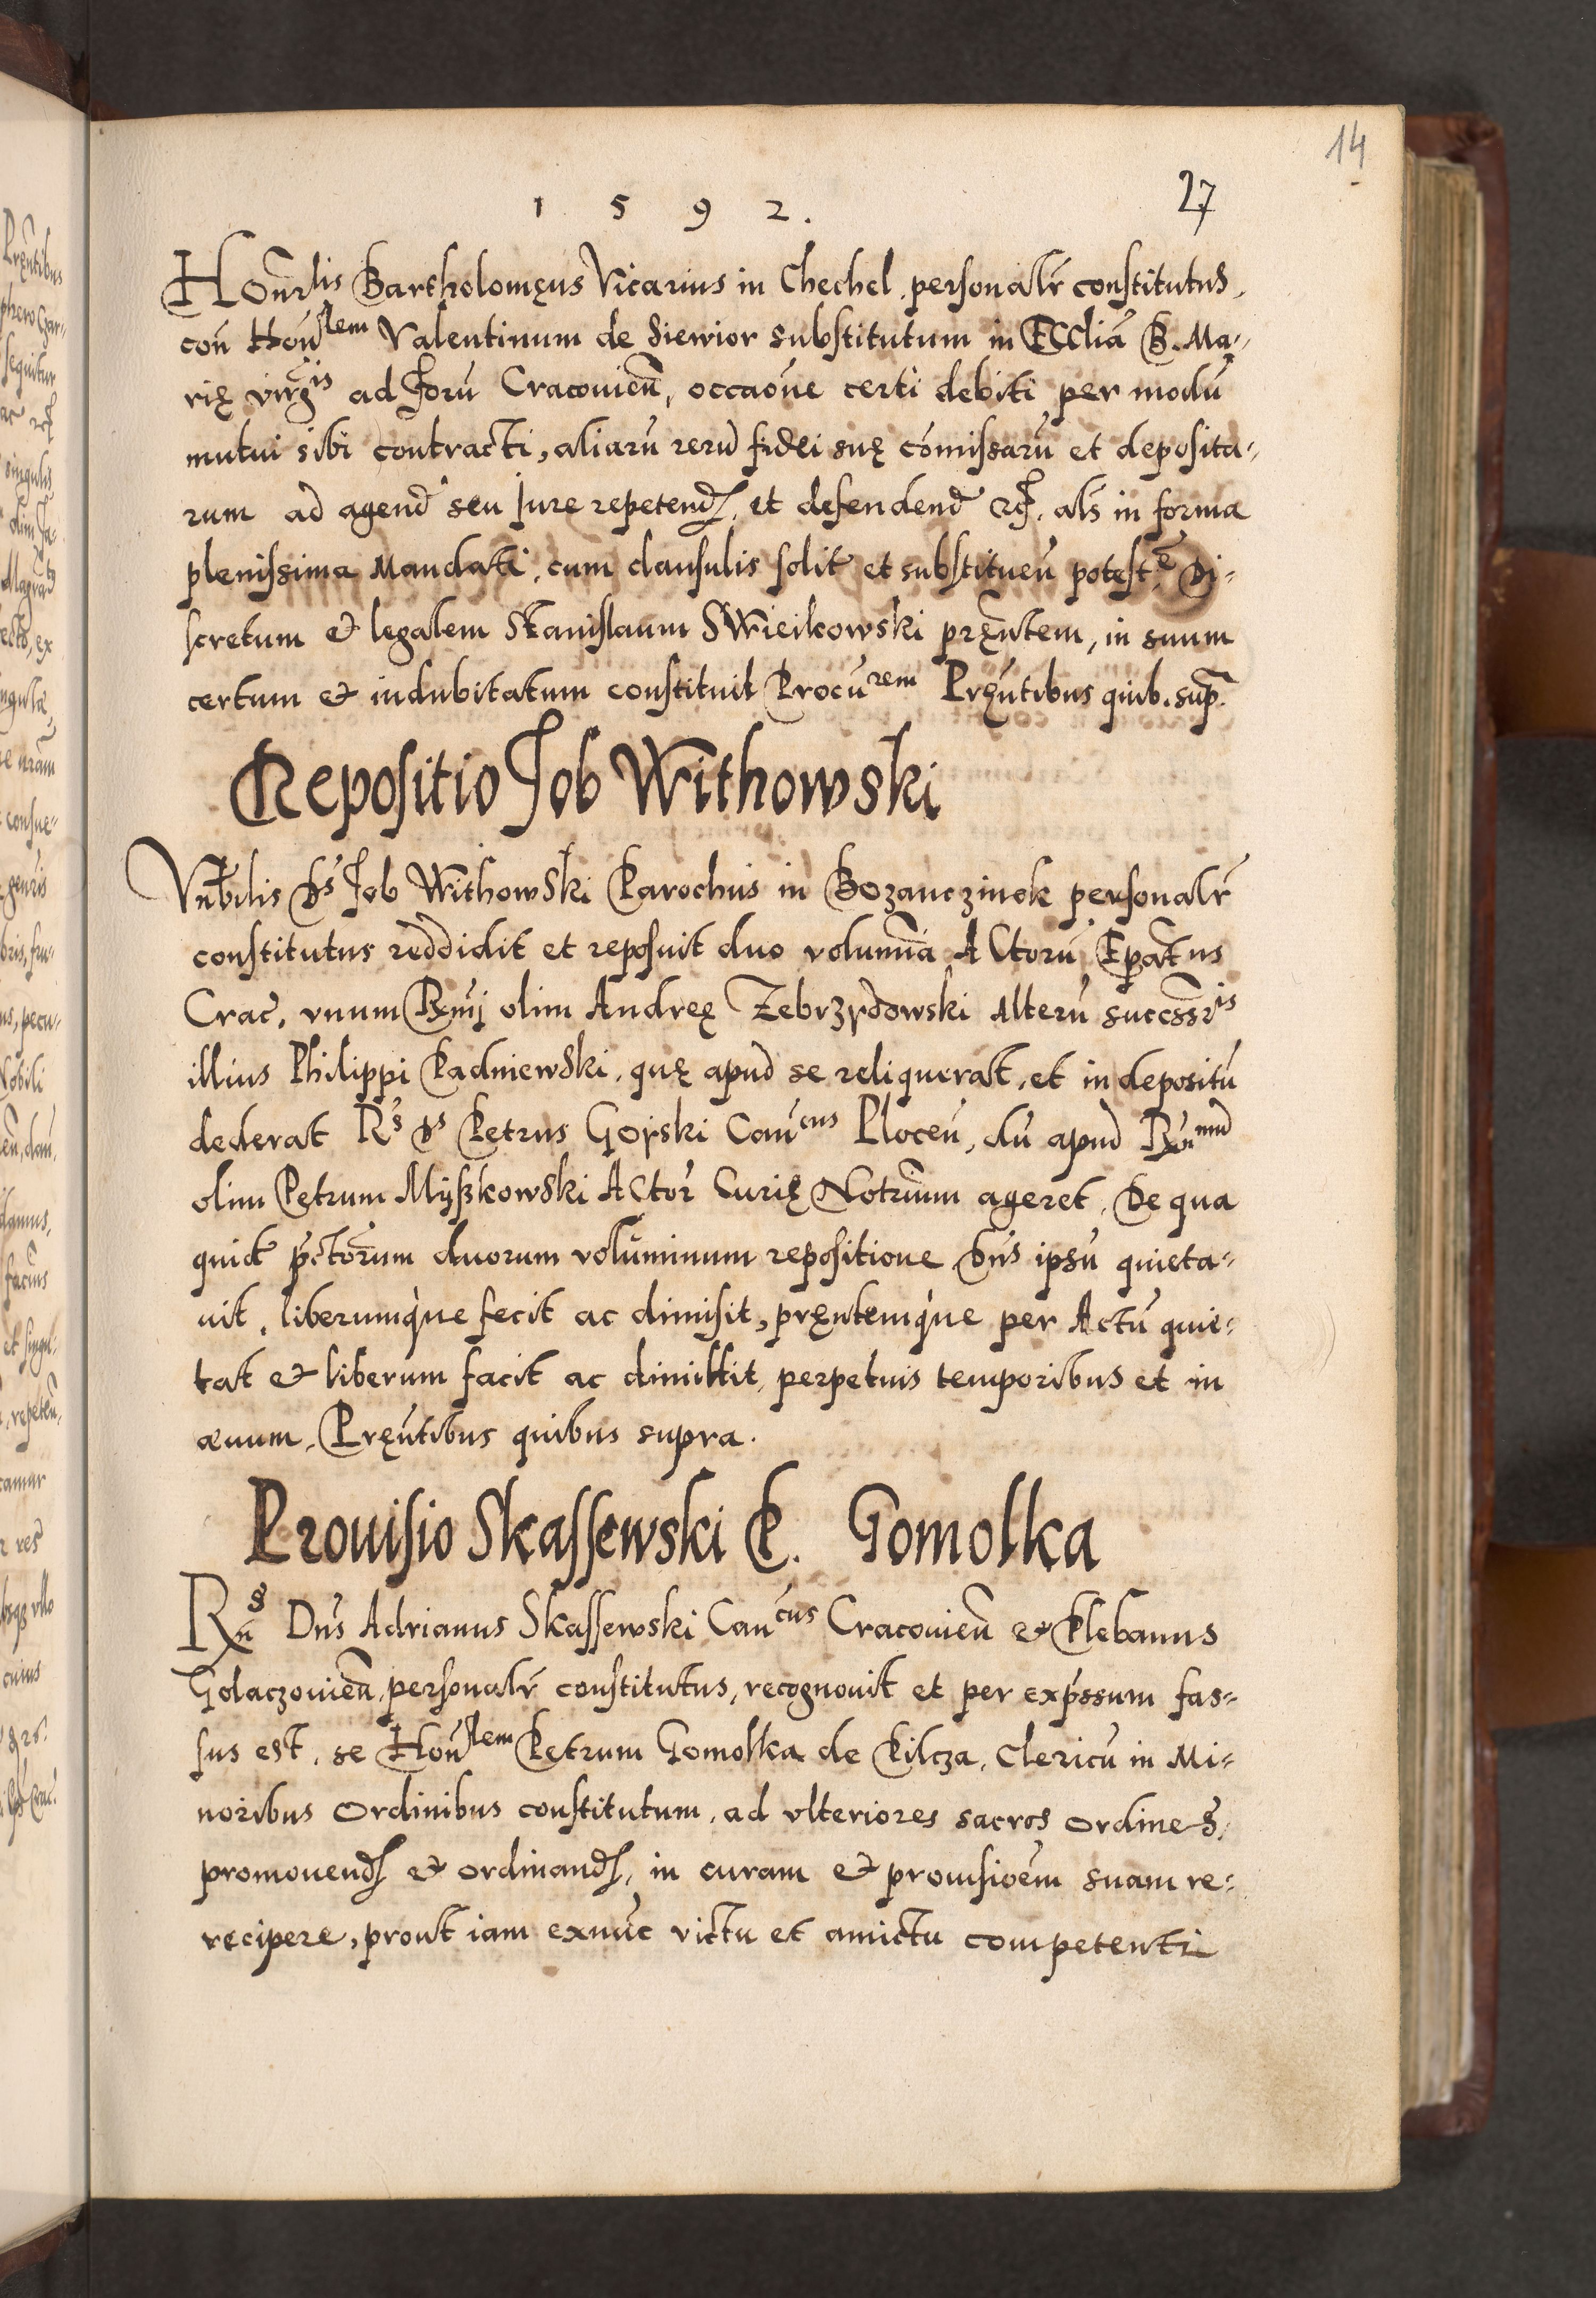 14
1 5 9 2.
27
Honrlis Bartholomęus Vicarius in Chechel, personalr constitutus,
con Honlem Valentinum de Siewior substitutum in Ecclia B. Ma-
rię virgis ad Foru Cracovien, occaone certi debiti per modu
mutui sibi contracti, aliaru reru fidei suę comissaru et deposita-
rum ad agend seu Jure repetend, et defendend etc. als in forma
plenissima Mandati, cum clausulis solit et substituen poteste, Di-
scretum et legalem Stanislaum SWieikowski pręntem, in suum
certum et indubitatum constituit Procurem Pręntibus quib. sup.
Repositio Job Withowski
Vnbilis ds Job Withowski Parochus in Bozanczinek personalr
constitutus reddidit et reposuit duo volumna Actoru Epatus
Crac, vnum Rmj olim Andreę Zebrzydowski Alteru succssris
illius Philippi Padniewski, quę apud se reliquerat, et in depositu
dederat Rs ds Petrus Gorski Cancus Plocen, du apud Rnmu
olim Petrum Myszkowski Actor Curię Notrium ageret, De qua
quid pctorum duorum voluminum repositione Dns ipsu quieta-
uit, liberumque fecit ac dimisit, pręntemque per Actu quie-
tat et liberum facit ac dimittit, perpetuis temporibus et in
æuum, Pręntibus quibus supra.
Prouisio Skassewski P. Gomolka
Rns Dns Adrianus Skassewski Cancus Cracouien et Plebanus
Golaczouien, personalr constitutus, recognouit et per expssum fas-
sus est, se Honlem Petrum Gomolka de Pilcza, Clericu in Mi-
noribus Ordinibus constitutum, ad vlteriores sacros ordines,
promouend et ordinand, in curam et prouisioem suam re-
recipere, prout iam exnuc victu et amictu competenti